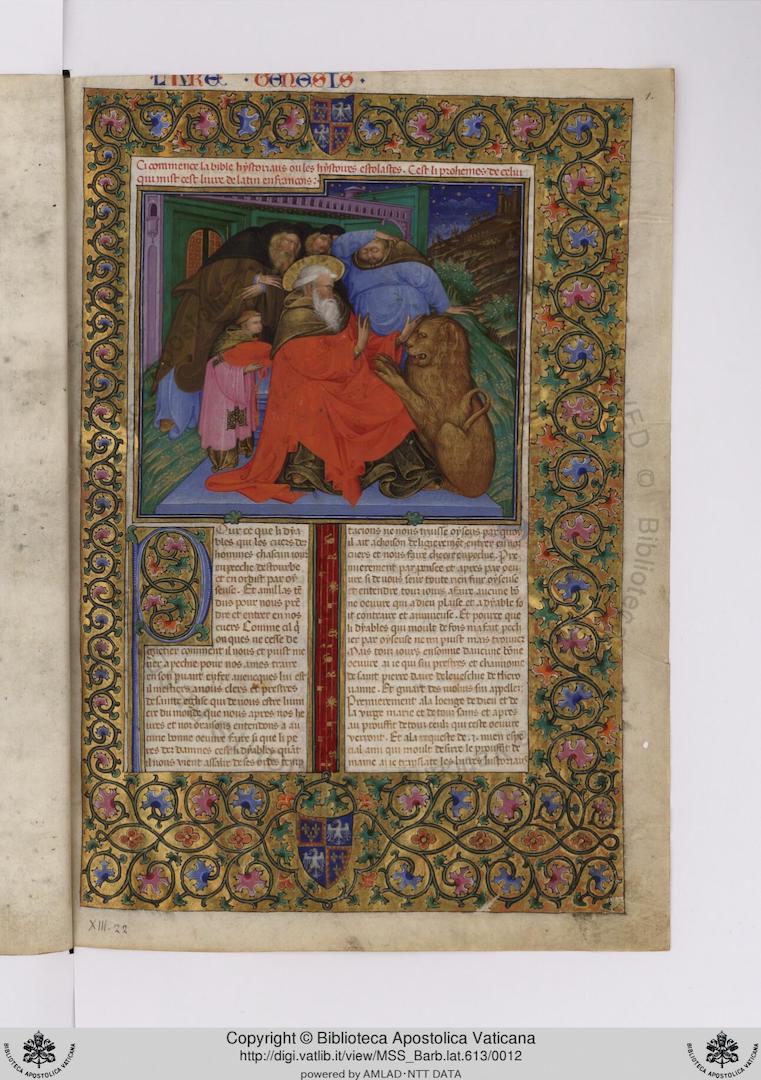 LIVRE · GENESIS ·
1.
Ci commence la bible hystoriaus ou les hystoires escolastes. C est li prohemes de celui
qui mist cest livre de latin en francois :
Our ce que li dya
bles qui les cuers des
hommes chascun iour
en peche destourbe
et en ordist par oy
seuse. Et
dus pour nous prē
dre et entrer en nos
cuers Comme cil q̄
onques ne cesse de
guetier comment il nous puist me
ner a peche pour nos ames traire
en son puant enfer avecques lui est
il mestiers a nous clers et prestres
de sainte eglise qui devons estre lumi
ere du monde que nous apres nos he
ures et nos oraisons entendons a au
cune bonne oeuvre faire si que li pe
res des dampnes cest li dyables quāt
il nous vient assalir de ses ordes temp
tacions ne nous truisse oyseus par quoy
il ait achoison de
ciers et nous faire cheoir en peche. Pre
mierement par pensee et apres par oeu
ure si devons seur toute rien fuir oyseuse
et entendre touz iours a faire aucune bō
ne oeuvre qui a dieu plaise et a dyable so
it contraire et annuieuse. Et pource que
li dyables qui moult de fois ma fait pech
ier par oyseuse ne me puist mais trouver
Mais touz iours en somme daucune bōne
oeuvre ai ie qui sui prestres et chanoine
de saint pierre daire de leveschie de thero
uanne. Et guiars des molins sui appellez
Premierement a la loenge de dieu et de
la virge marie et de touz sains et apres
au prouffit de touz ceulx qui ceste oeuvre
verront. Et ala requeste de .i. mien espe
cial ami qui moult desirre le prouffit de
mame ai ie translate les livres historiaus
XIII-22
Copyright © Biblioteca Apostolica Vaticana
http://digi.vatlib.it/view/MSS_Barb.lat.613/0012
powered by AMLAD·NTT DATA
BIBLIOTECA APOSTOLICA VATICANA
BIBLIOTECA APOSTOLICA VATICANA